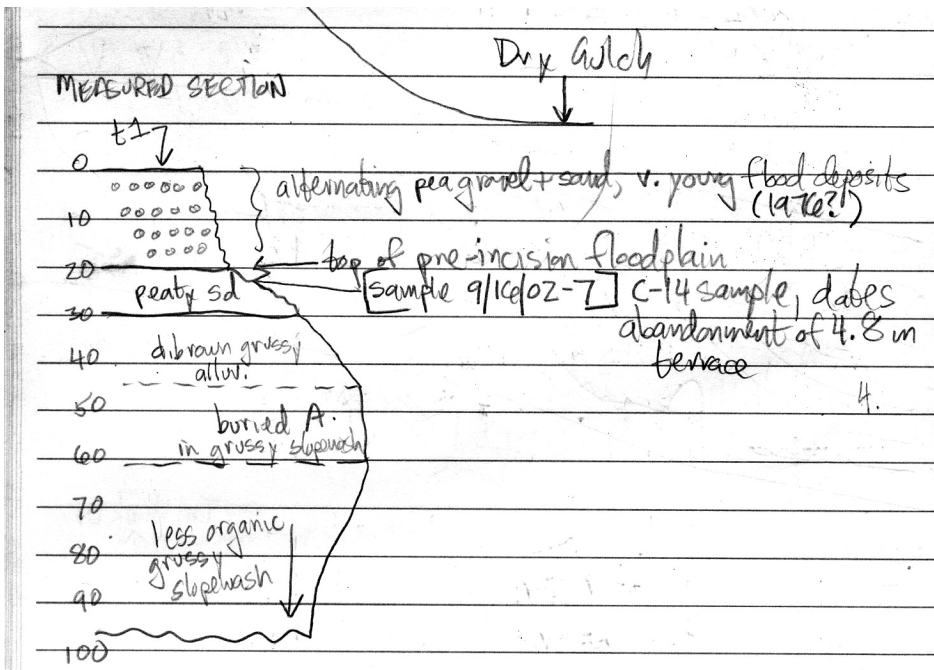 Dry Gulch
MEASURED SECTION
t1
0
alternating pea gravel + sand, v. young flood deposits
(1976?)
10
top of pre-incision floodplain
20
peaty sd
[sample 9/16/02-7] C-14 sample, dates
abandonment of 4.8 m
terrace
30
d.brown grussy
alluv.
40
4.
50
buried A.
in grussy slopewash
60
70
less organic
grussy
slopewash
80
90
100